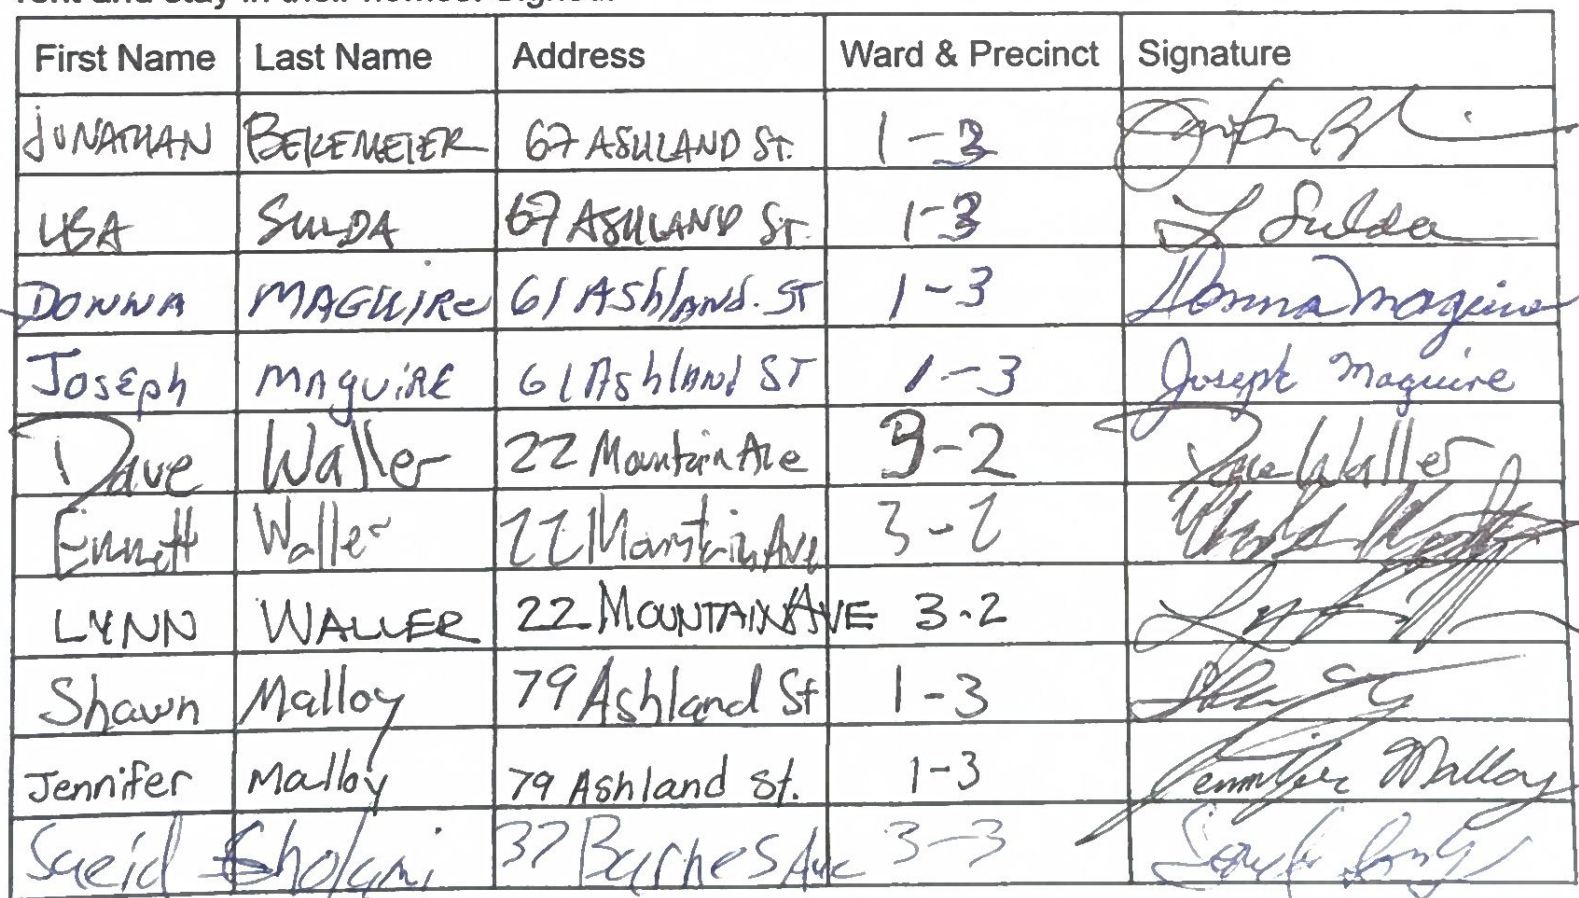 First Name Last Name Address Ward & Precinct Signature
JONATHAN BEKEMEIER 67 ASHLAND ST. 1-3
LISA SULDA 67 ASHLAND ST. 1-3 L Sulda
DONNA MAGUIRe 61 AShlAND. ST 1-3 Donna Maguire
JosEph MAguiRE 61 AShlANd ST 1-3 Joseph Maguire
Dave Waller 22 Mountain Ave 3-2 Dave Waller
Emmett Waller 22 Mountain Ave 3-2
LYNN WALLER 22 MOUNTAIN AVE 3-2
Shawn Malloy 79 Ashland St 1-3
Jennifer Malloy 79 Ashland St. 1-3 Jennifer Malloy
Saeid Gholami 37 Barnes Ave 3-3